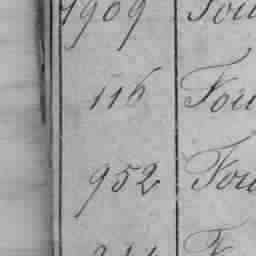 1909 Fou
116 Fou
952 Fou